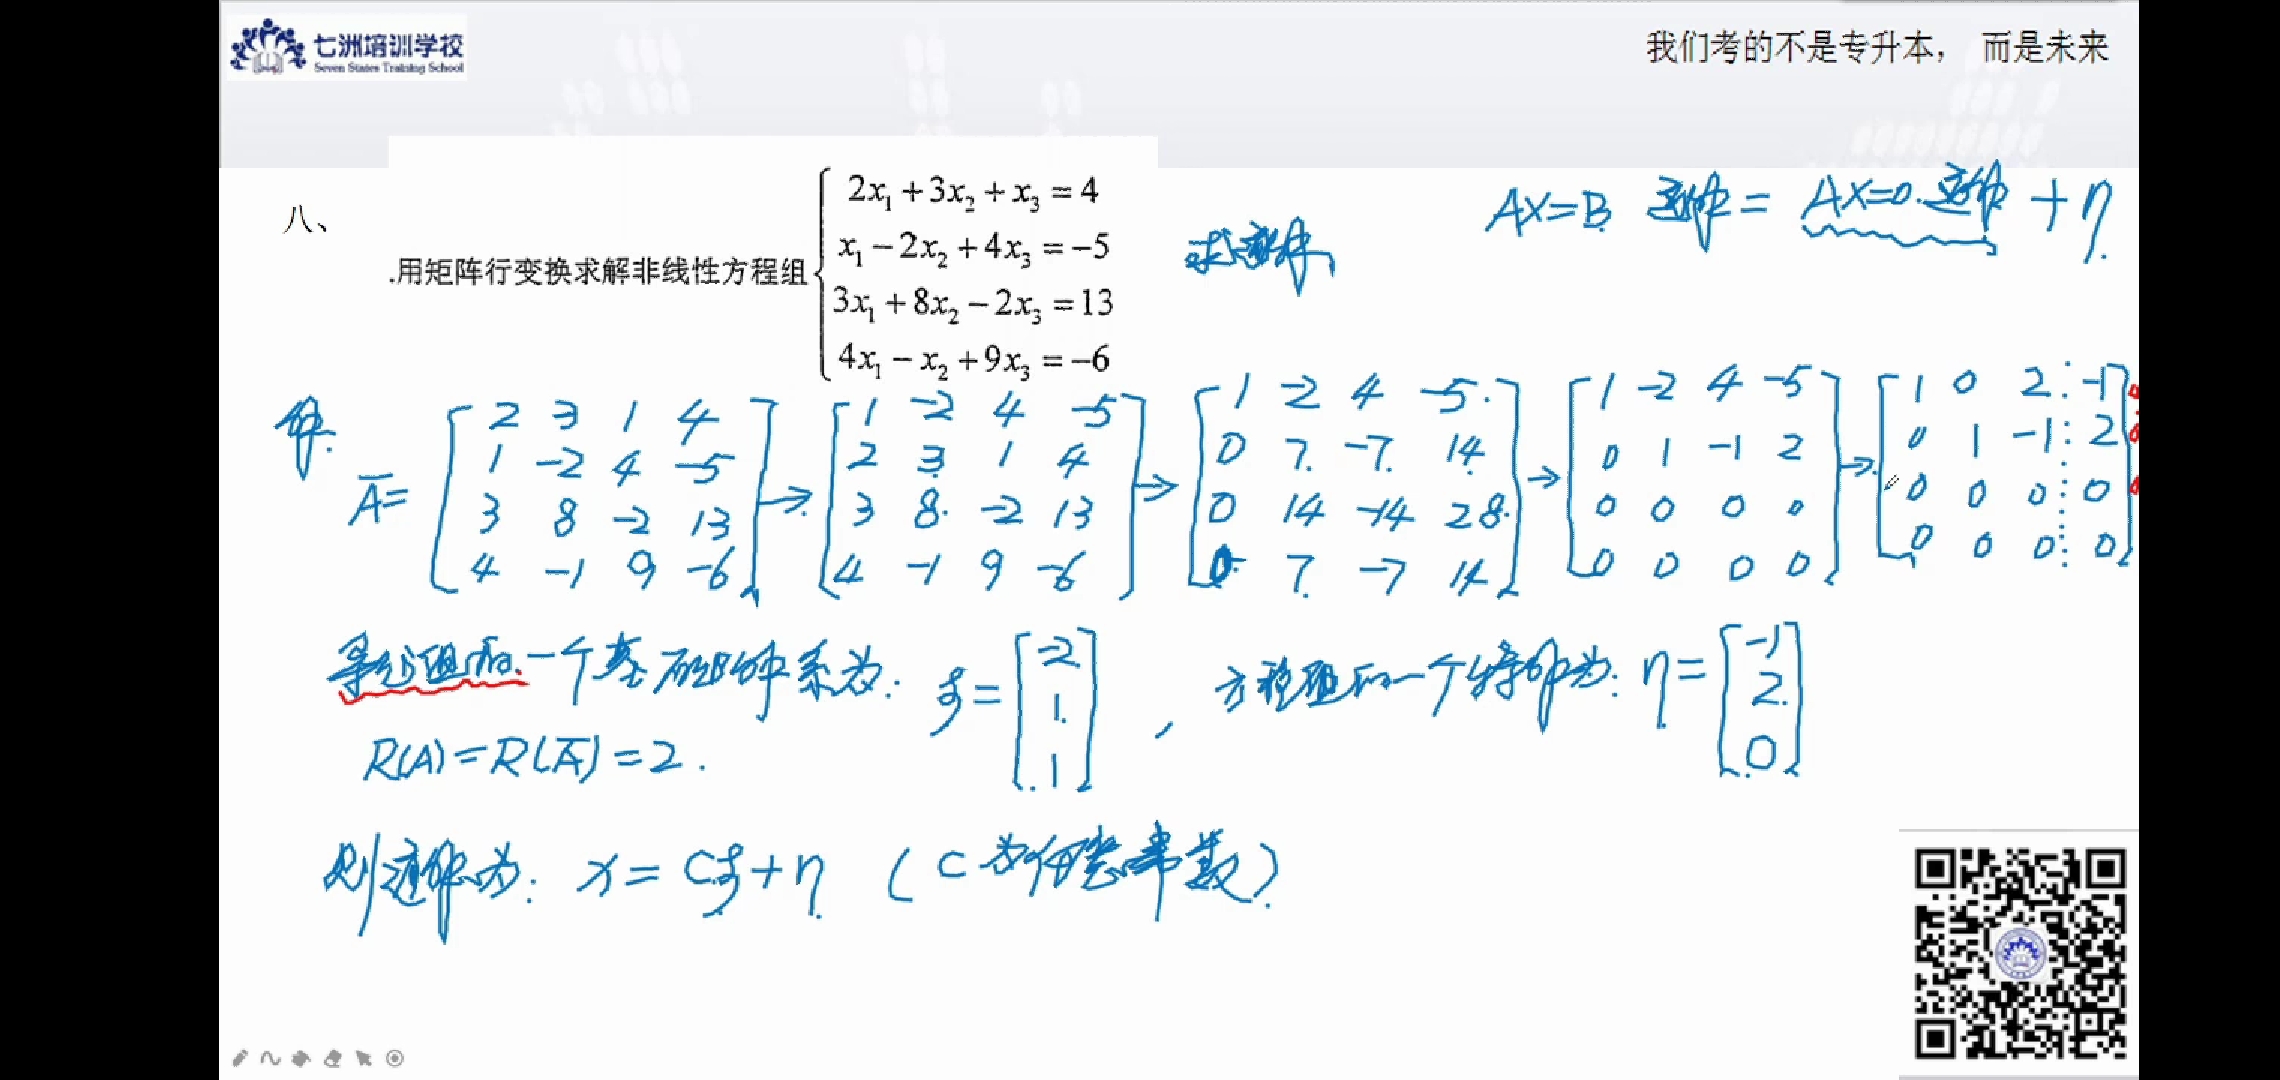 七洲培训学校
Seven States Training School
我们考的不是专升本， 而是未来
八、
.用矩阵行变换求解非线性方程组
2x₁ + 3x₂ + x₃ = 4
x₁ − 2x₂ + 4x₃ = −5
3x₁ + 8x₂ − 2x₃ = 13
4x₁ − x₂ + 9x₃ = −6
求通解
AX=B 通解 = AX=0.通解 + η.
解.
Ā=
2 3 1 4
1 -2 4 -5
3 8 -2 13
4 -1 9 -6
→
1 -2 4 -5
2 3 1 4
3 8 -2 13
4 -1 9 -6
→
1 -2 4 -5
0 7 -7 14
0 14 -14 28
0 7 -7 14
→
1 -2 4 -5
0 1 -1 2
0 0 0 0
0 0 0 0
→
1 0 2 -1
0 1 -1 2
0 0 0 0
0 0 0 0
导出组的一个基础解系为: ξ =
-2
1
1
, 方程组的一个特解为: η =
-1
2
0
R(A) = R(Ā) = 2.
则通解为: x = cξ + η (c为任意常数)